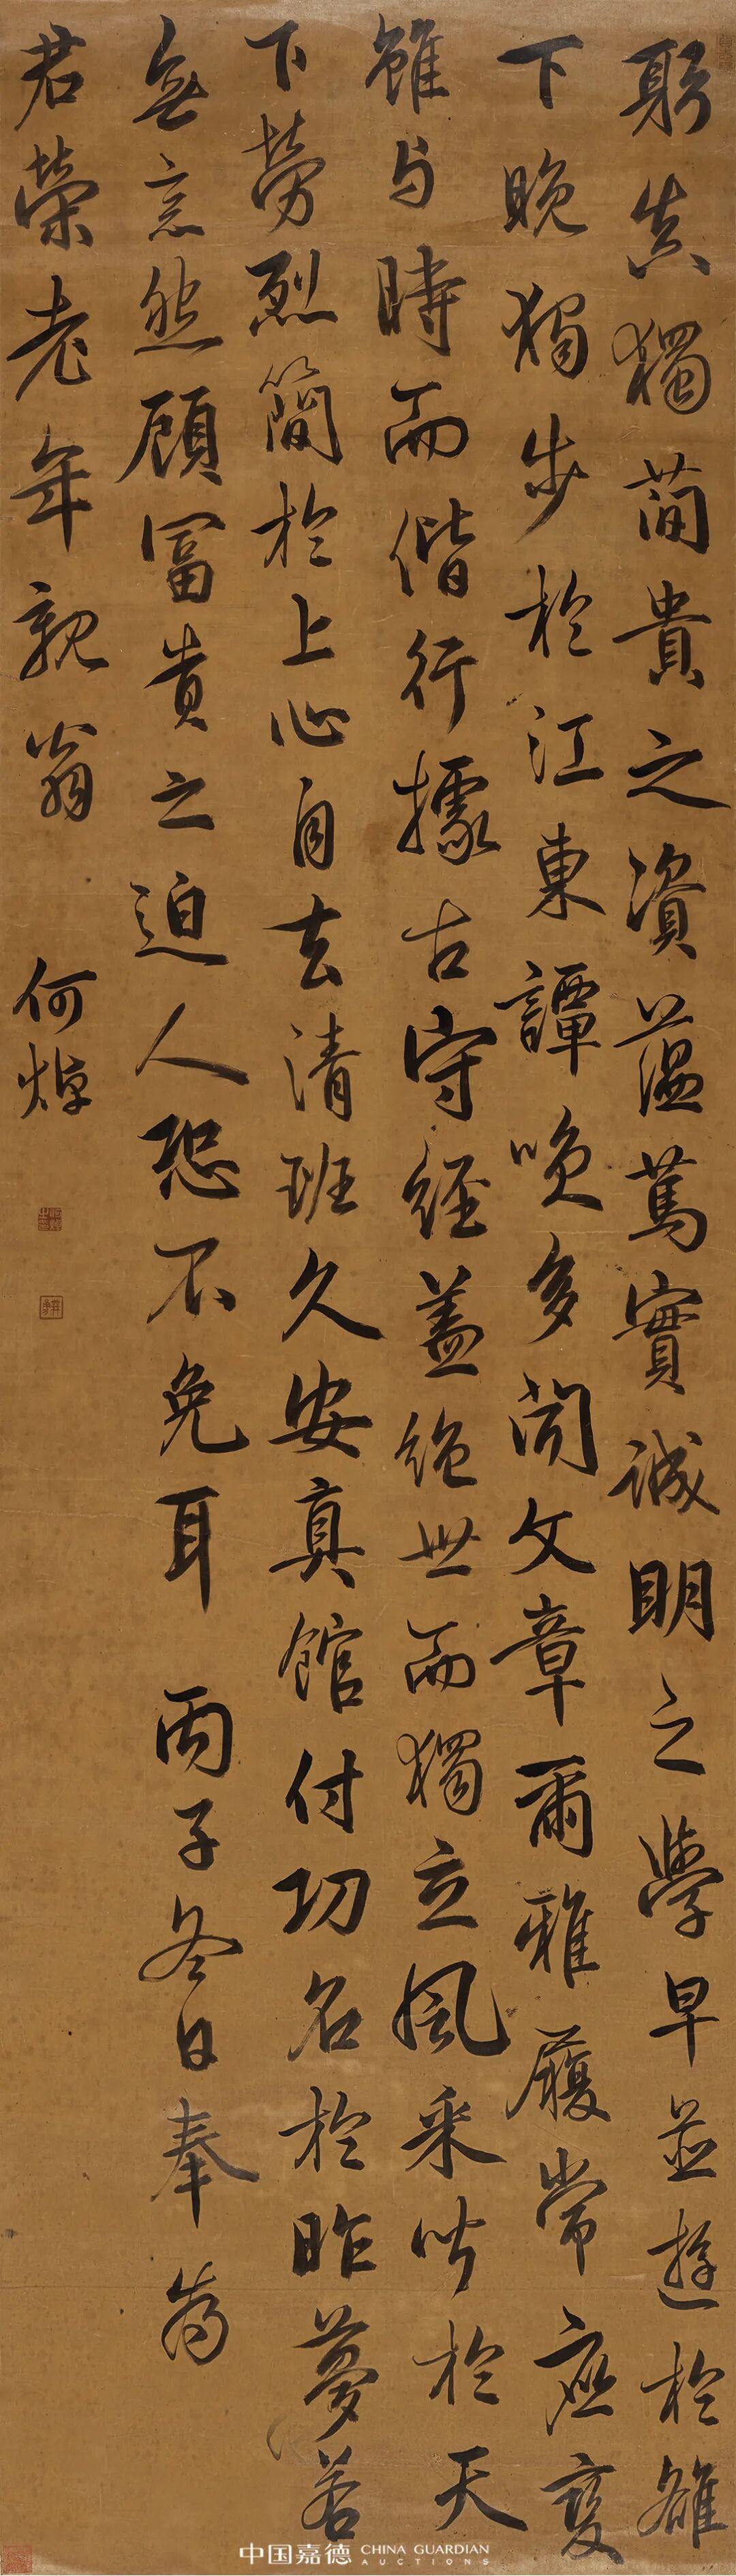 躬真獨蕳貴之資蕰蔿實誠明之學早並遊於雒
下晚獨步於江東譚唤多閒文章爾雅履常應變
雖与時而偕行據古守經盖絶世而獨立風采皆於天
下勞烈簡於上心自去清班久安真館付功名於昨夢若
無意然顧冨貴之迫人恐不免耳 丙子冬日奉为
君榮老年親翁 何焯
中国嘉德 CHINA GUARDIAN AUCTIONS